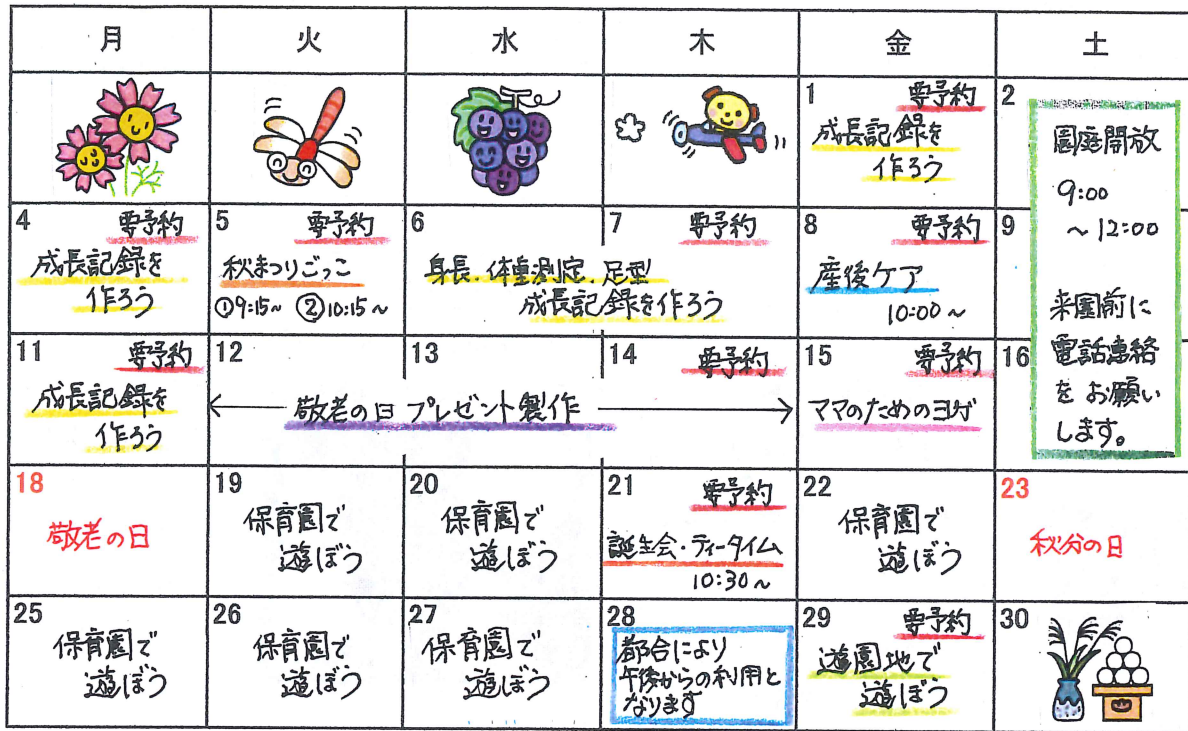 月 火 水 木 金 土
1 要予約
成長記録を
作ろう
2
園庭開放
9:00
～12:00
来園前に
電話連絡
をお願い
します。
4 要予約
成長記録を
作ろう
5 要予約
秋まつりごっこ
①9:15～ ②10:15～
6
7 要予約
身長・体重測定・足型
成長記録を作ろう
8 要予約
産後ケア
10:00～
9
11 要予約
成長記録を
作ろう
12
13
14 要予約
敬老の日プレゼント製作
15 要予約
ママのためのヨガ
16
18
敬老の日
19
保育園で
遊ぼう
20
保育園で
遊ぼう
21 要予約
誕生会・ティータイム
10:30～
22
保育園で
遊ぼう
23
秋分の日
25
保育園で
遊ぼう
26
保育園で
遊ぼう
27
保育園で
遊ぼう
28
都合により
午後からの利用と
なります
29 要予約
遊園地で
遊ぼう
30